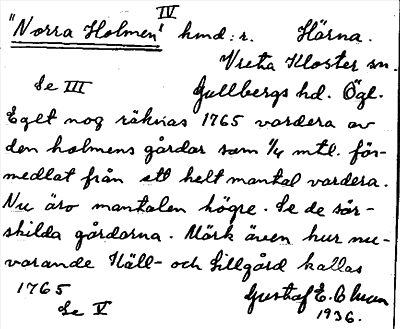 IV
"Norra Holmen" hmd: r. Härna.
Vreta Kloster sn.
Se III Gullbergs hd. Ögl.
Eglt nog räknas 1765 vardera av
den holmens gårdar som 1/4 mtl. för-
medlat från ett helt mantal vardera.
Nu äro mantalen högre. Se de sär-
skilda gårdarna. Märk även hur nu-
varande Käll- och Lillgård kallas
1765 Gustaf E. Olsson
Se V 1936.